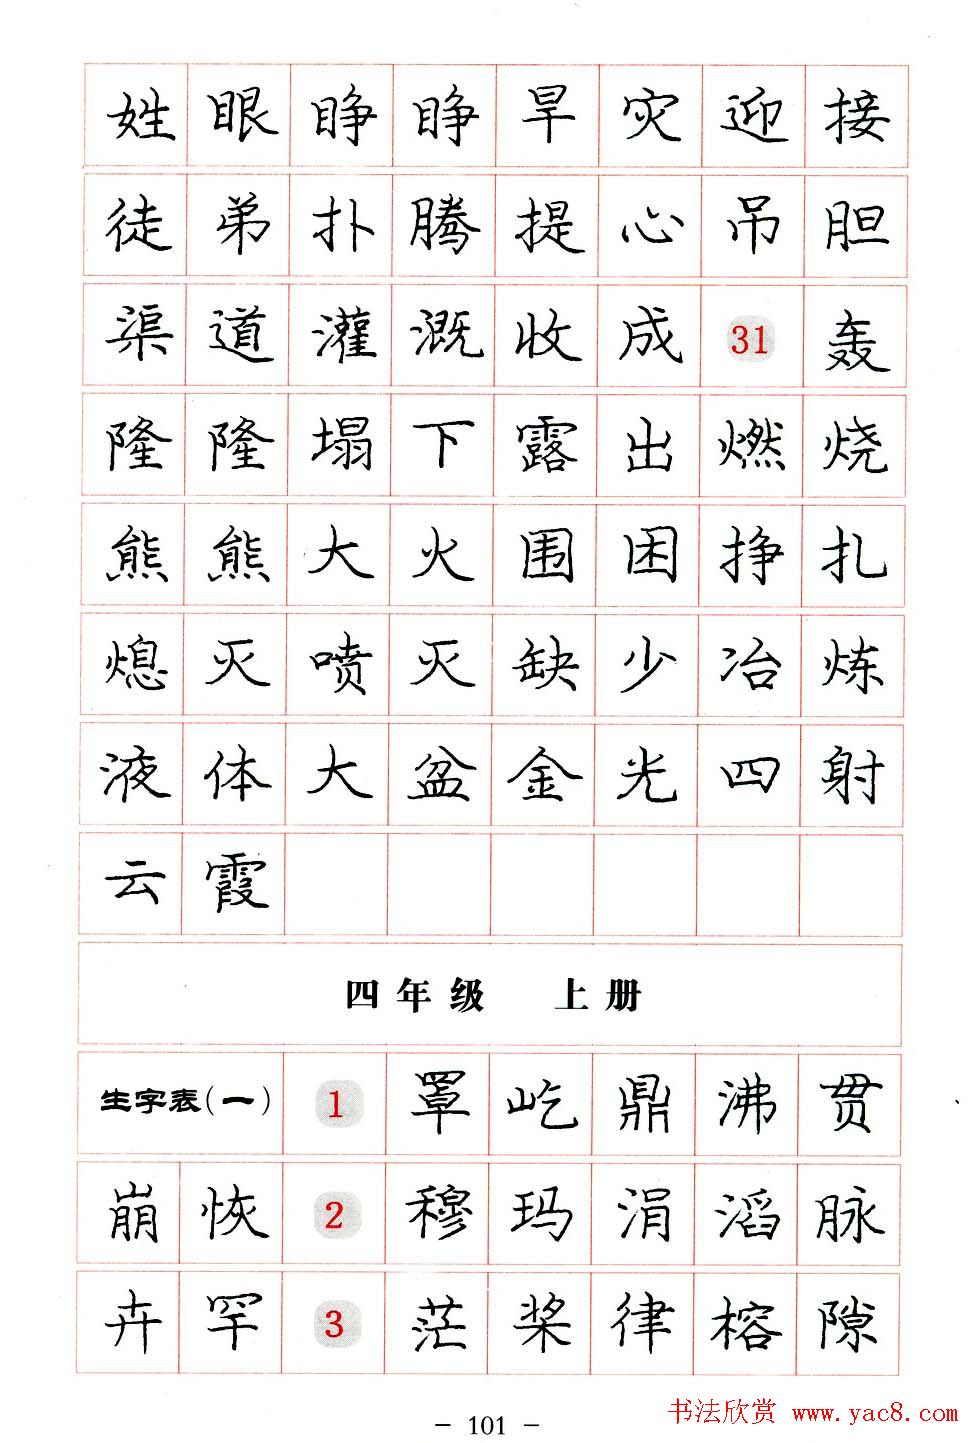 姓眼睁睁旱灾迎接
徒弟扑腾提心吊胆
渠道灌溉收成31轰
隆隆塌下露出燃烧
熊熊大火围困挣扎
熄灭喷灭缺少冶炼
液体大盆金光四射
云霞
四年级 上册
生字表(一) 1 罩屹鼎沸贯
崩恢 2 穆玛涓滔脉
卉罕 3 茫桨律榕隙
- 101 -
书法欣赏 www.yac8.com